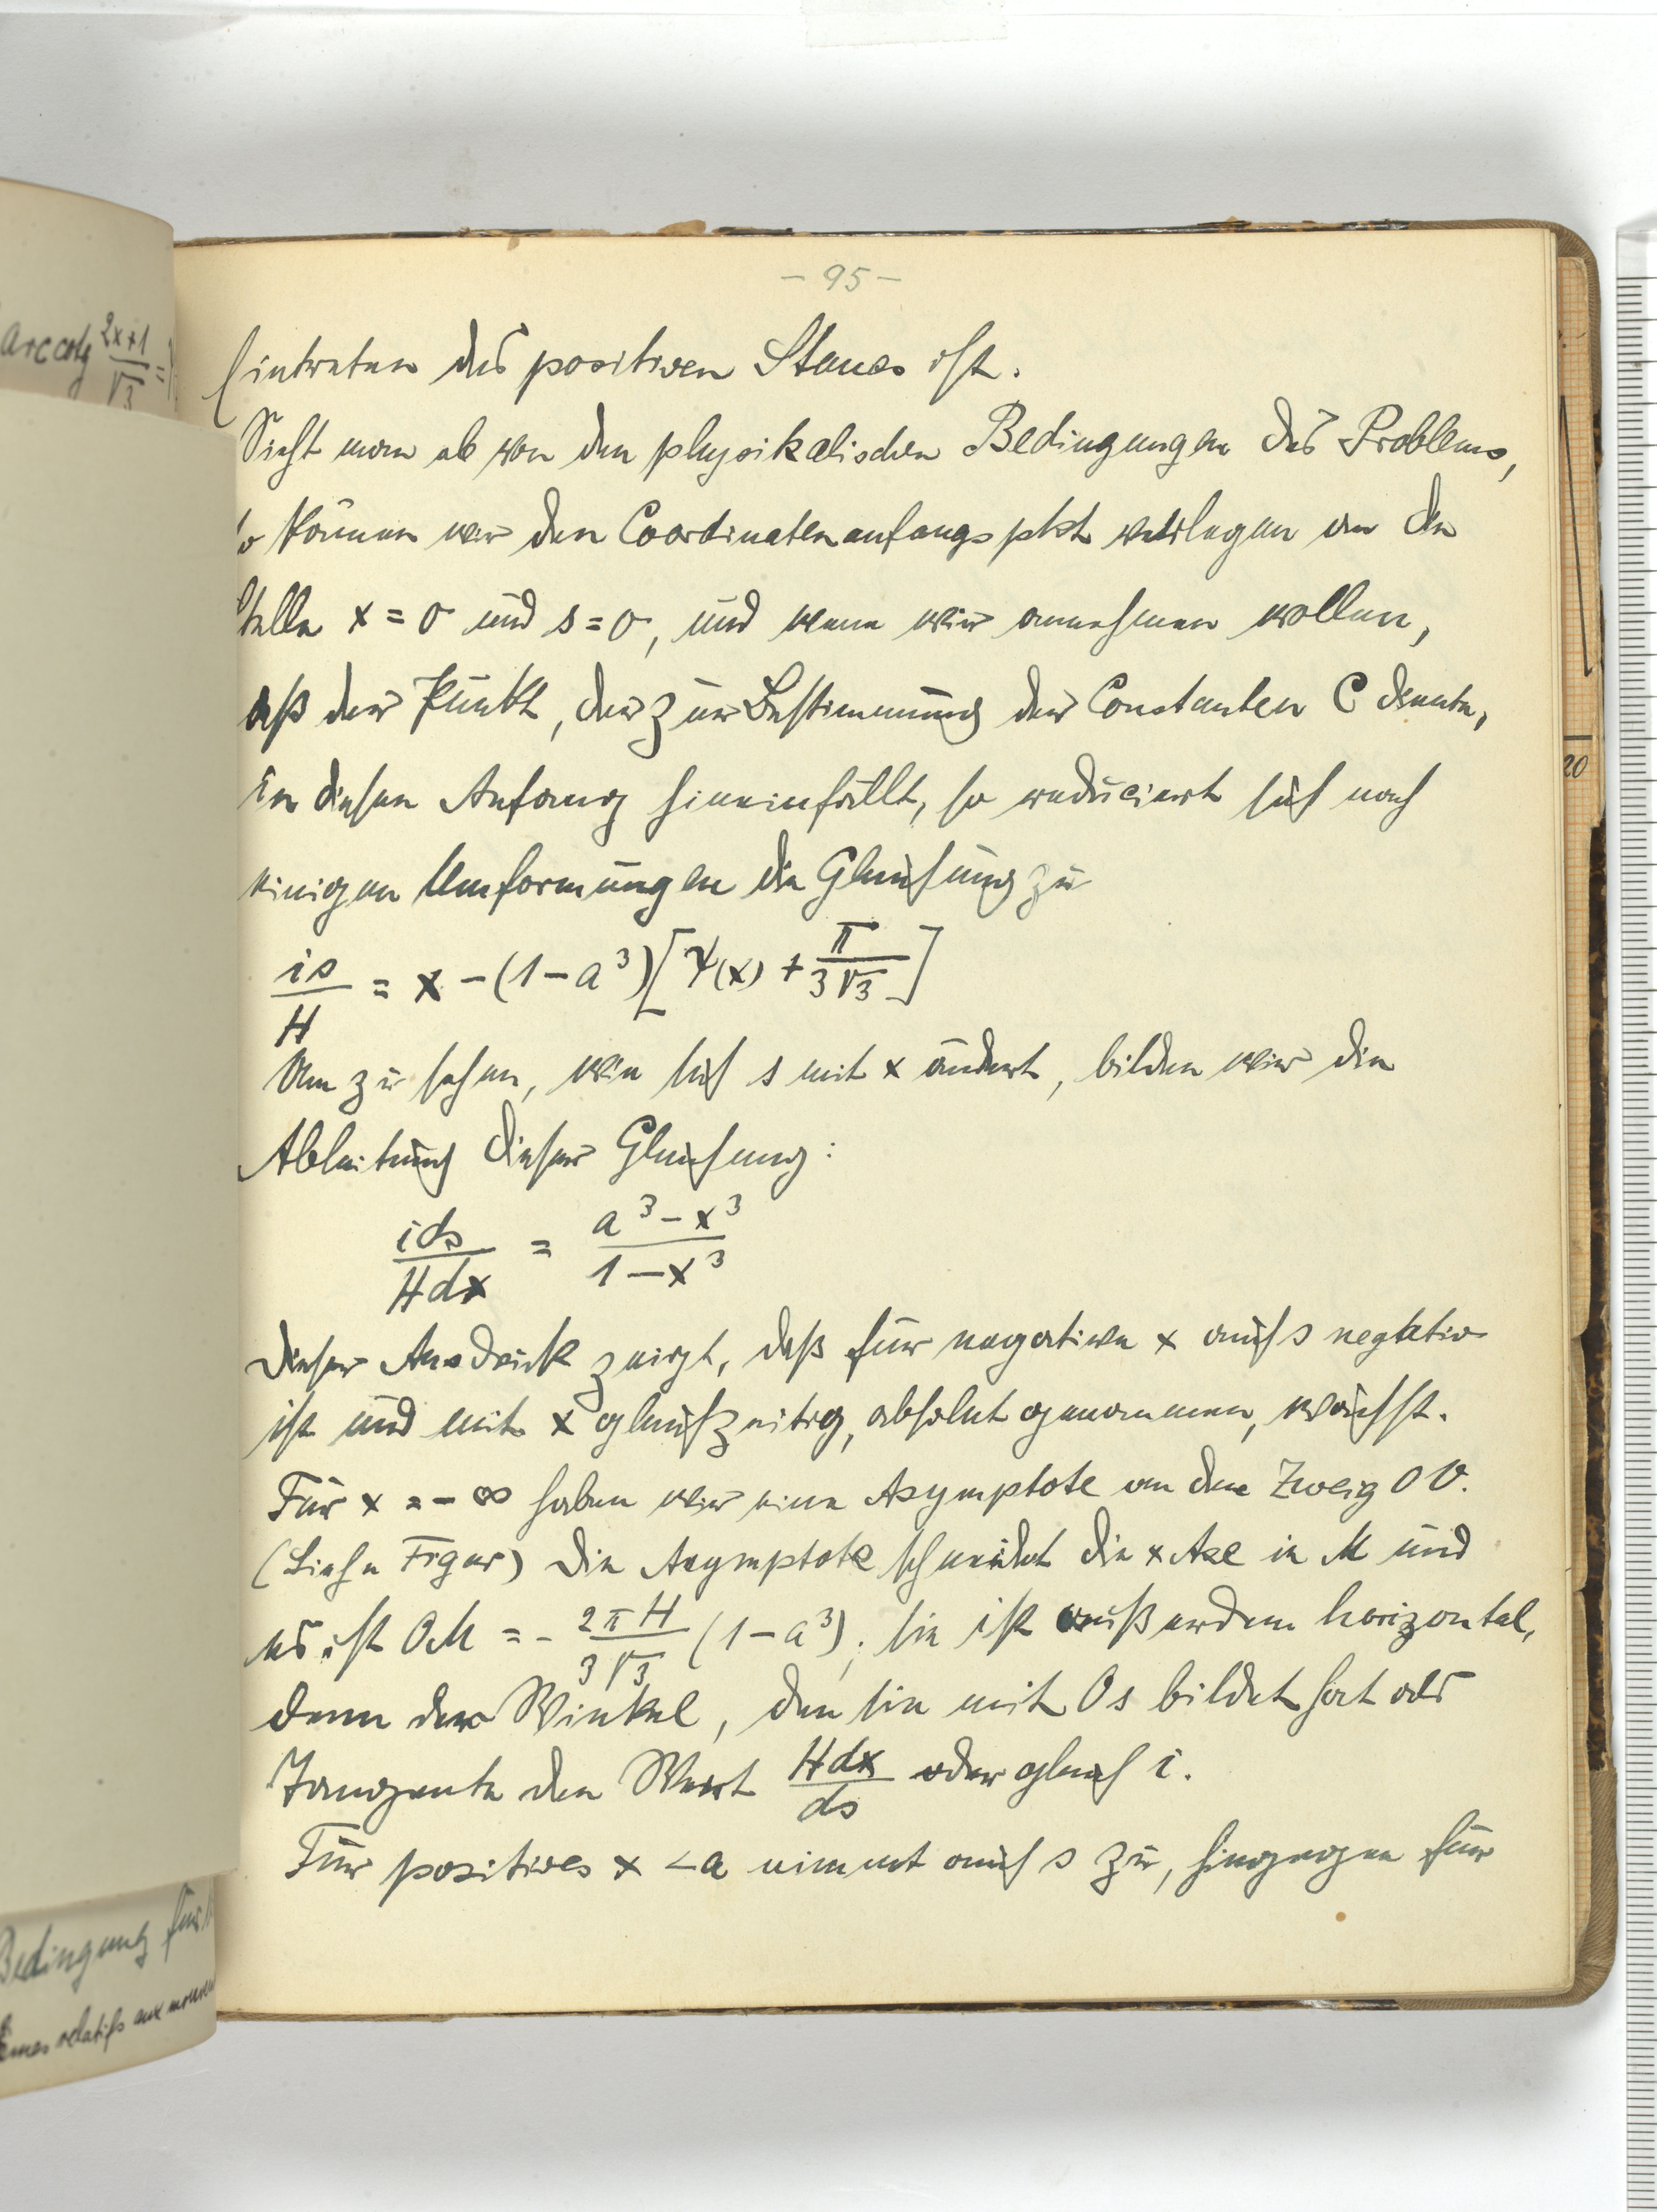 - 95 -
Eintreten des positiven Staues ist.
Sieht man ab von den physikalischen Bedingungen des Problems,
so können wir den Coordinatenanfangspkt verlegen an die
Stelle x = 0 und s = 0, und wenn wir annehmen wollen,
daß der Punkt, der zur Bestimmung der Constanten C diente,
in diesen Anfang hineinfällt, so reduciert sich nach
einigen Umformungen die Gleichung zu
is/H = x - (1 - a³)[ψ(x) + π/3√3]
Um zu sehen, wie sich s mit x ändert, bilden wir die
Ableitung dieser Gleichung:
ids/Hdx = a³ - x³/1 - x³
Dieser Ausdruck zeigt, daß für negative x auch s negativ
ist und mit x gleichzeitig, absolut genommen, wächst.
Für x = - ∞ haben wir eine Asymptote an den Zweig OV.
(Siehe Figur) Die Asymptote schneidet die x Axe in M und
es ist OM = - 2πH/3√3 (1 - a³); sie ist außerdem horizontal,
denn der Winkel, den sie mit Os bildet hat als
Tangente den Wert Hdx/ds oder gleich i.
Für positives x < a nimmt auch s zu, hingegen für
arccotg 2x+1/√3 =
20
Bedingung für
relatifs aux